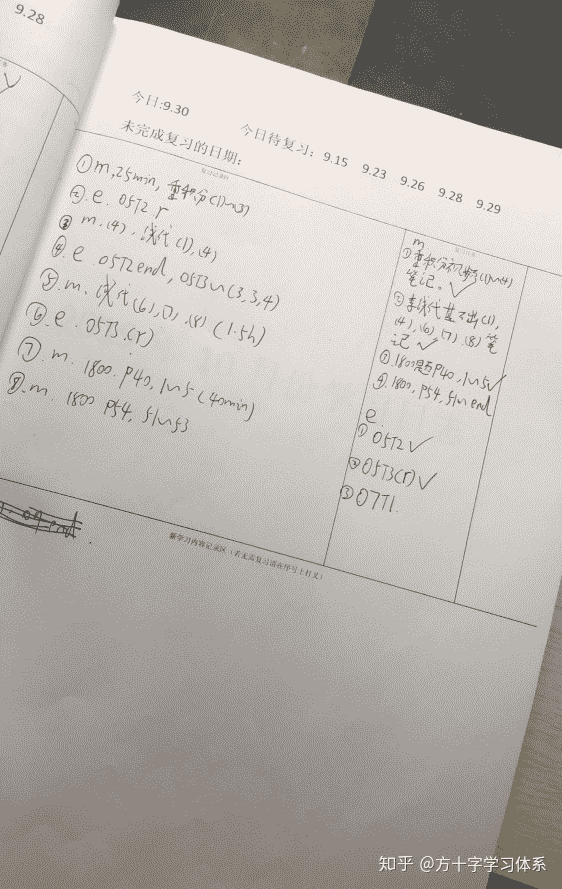 9.28
今日:9.30
今日待复习: 9.15 9.23 9.26 9.28 9.29
未完成复习的日期:
①m,25min, 重积分(1)~(3)
②.e. 05T2 r
③ m.(4). 线代(1),(4)
④.e 05T2end, 05T3~(3,3,4)
⑤.m. 线代(6),(7).(8) (1.5h)
⑥.e. 05T3.(r)
⑦. m. 1800. P40, 1~5 (40min)
⑧.m. 1800 P54, 51~53
m
①重积分 (1)~(4)
笔记。✓
②李线代基础(1),
(4),(6).(7).(8)笔
记 ✓
③.1800题P40,1~5✓
④.1800,P54,51~end
e.
①05T2✓
②05T3(r)✓
③07T1.
新学习内容记录区(若无需复习请在序号上打叉)
知乎 @方十字学习体系